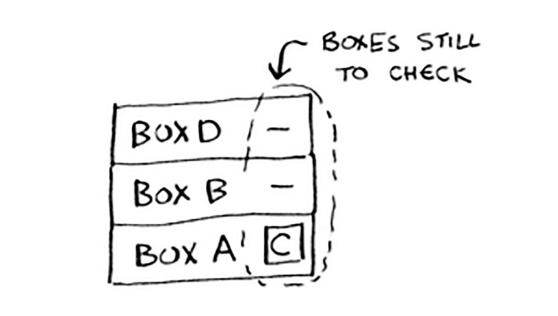 BOXES STILL
TO CHECK
BOX D -
BOX B -
BOX A C